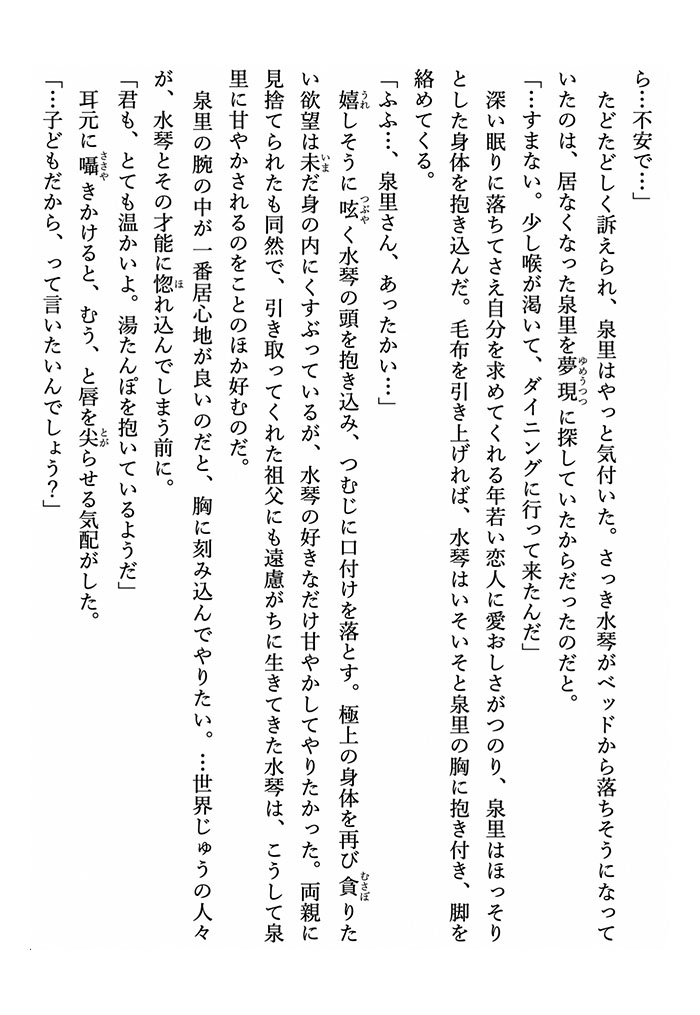 ら…不安で…」
　たどたどしく訴えられ、泉里はやっと気付いた。さっき水琴がベッドから落ちそうになって
いたのは、居なくなった泉里を夢現に探していたからだったのだと。
「…すまない。少し喉が渇いて、ダイニングに行って来たんだ」
　深い眠りに落ちてさえ自分を求めてくれる年若い恋人に愛おしさがつのり、泉里はほっそり
とした身体を抱き込んだ。毛布を引き上げれば、水琴はいそいそと泉里の胸に抱き付き、脚を
絡めてくる。
「ふふ…、泉里さん、あったかい…」
　嬉しそうに呟く水琴の頭を抱き込み、つむじに口付けを落とす。極上の身体を再び貪りた
い欲望は未だ身の内にくすぶっているが、水琴の好きなだけ甘やかしてやりたかった。両親に
見捨てられたも同然で、引き取ってくれた祖父にも遠慮がちに生きてきた水琴は、こうして泉
里に甘やかされるのをことのほか好むのだ。
　泉里の腕の中が一番居心地が良いのだと、胸に刻み込んでやりたい。…世界じゅうの人々
が、水琴とその才能に惚れ込んでしまう前に。
「君も、とても温かいよ。湯たんぽを抱いているようだ」
　耳元に囁きかけると、むう、と唇を尖らせる気配がした。
「…子どもだから、って言いたいんでしょう？」